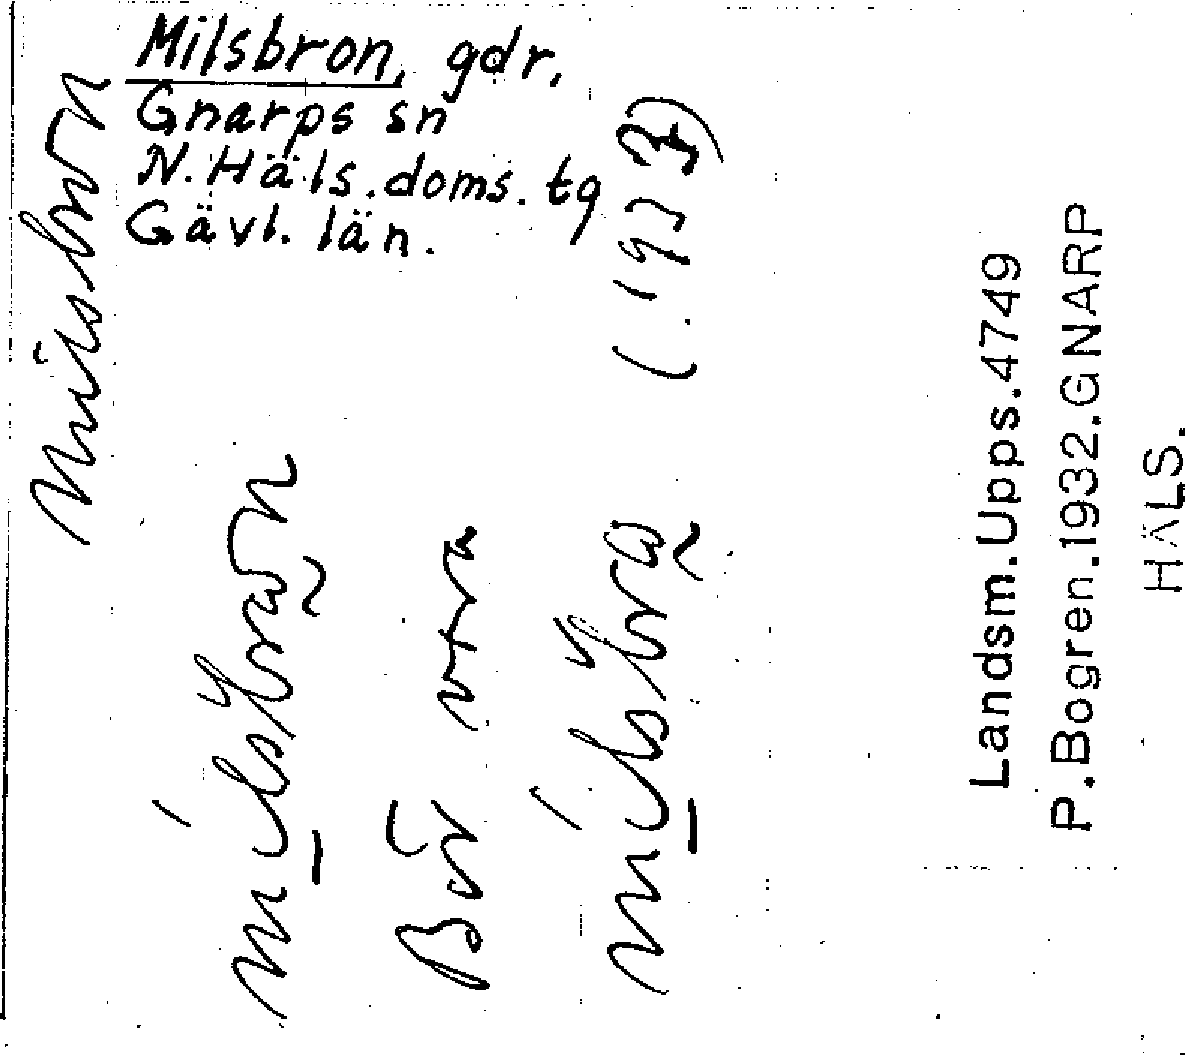 Milsbron, gdr,
Gnarps sn
N. Häls. doms. tg
Gävl. län.
Milsbron
Bör vara
(.1933)
Landsm.Upps.4749
P.Bogren.1932.GNARP
HÄLS.